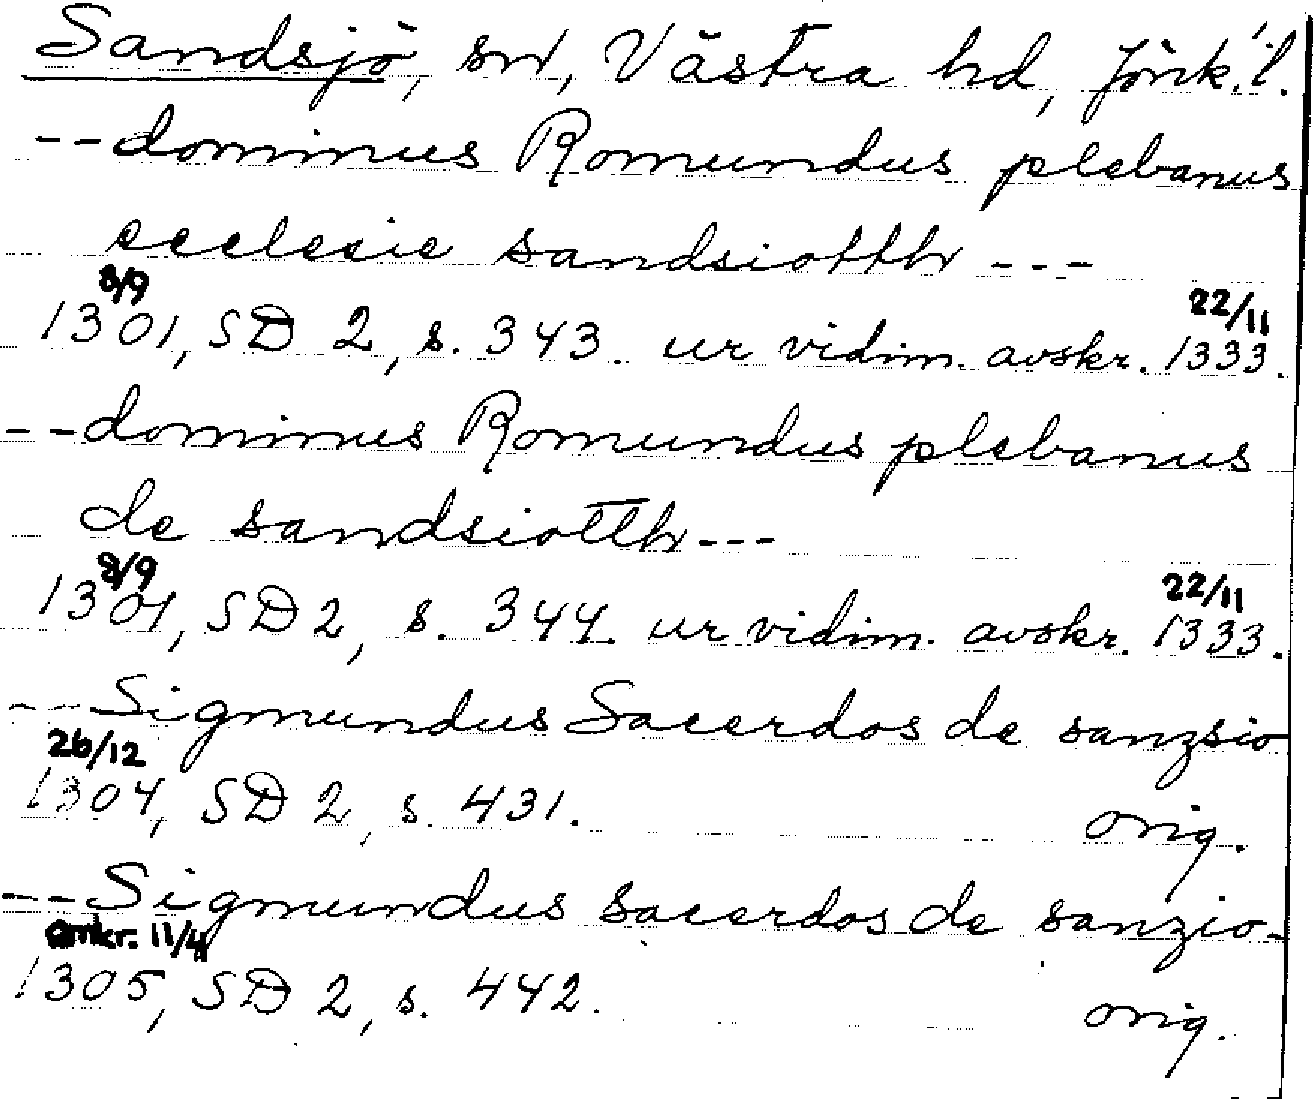 Sandsjö, sn, Västra hd, Jönk. l.
-- dominus Romundus plebanus
ecclesie sandsiotth ---
8/9 22/11
1301, SD 2, s. 343. ur vidim. avskr. 1333.
-- dominus Romundus plebanus
de sandsiotth ---
8/9 22/11
1301, SD 2, s. 344. ur vidim. avskr. 1333.
-- Sigmundus Sacerdos de sanzsio
26/12
1304, SD 2, s. 431. orig.
-- Sigmundus sacerdos de sanzio-
omkr. 11/4
1305, SD 2, s. 442. orig.